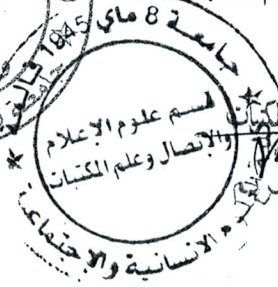 جامعة 8 ماي 1945 قالمة
قسم علوم الإعلام
والإتصال وعلم المكتبات
الانسانية والإجتماعية